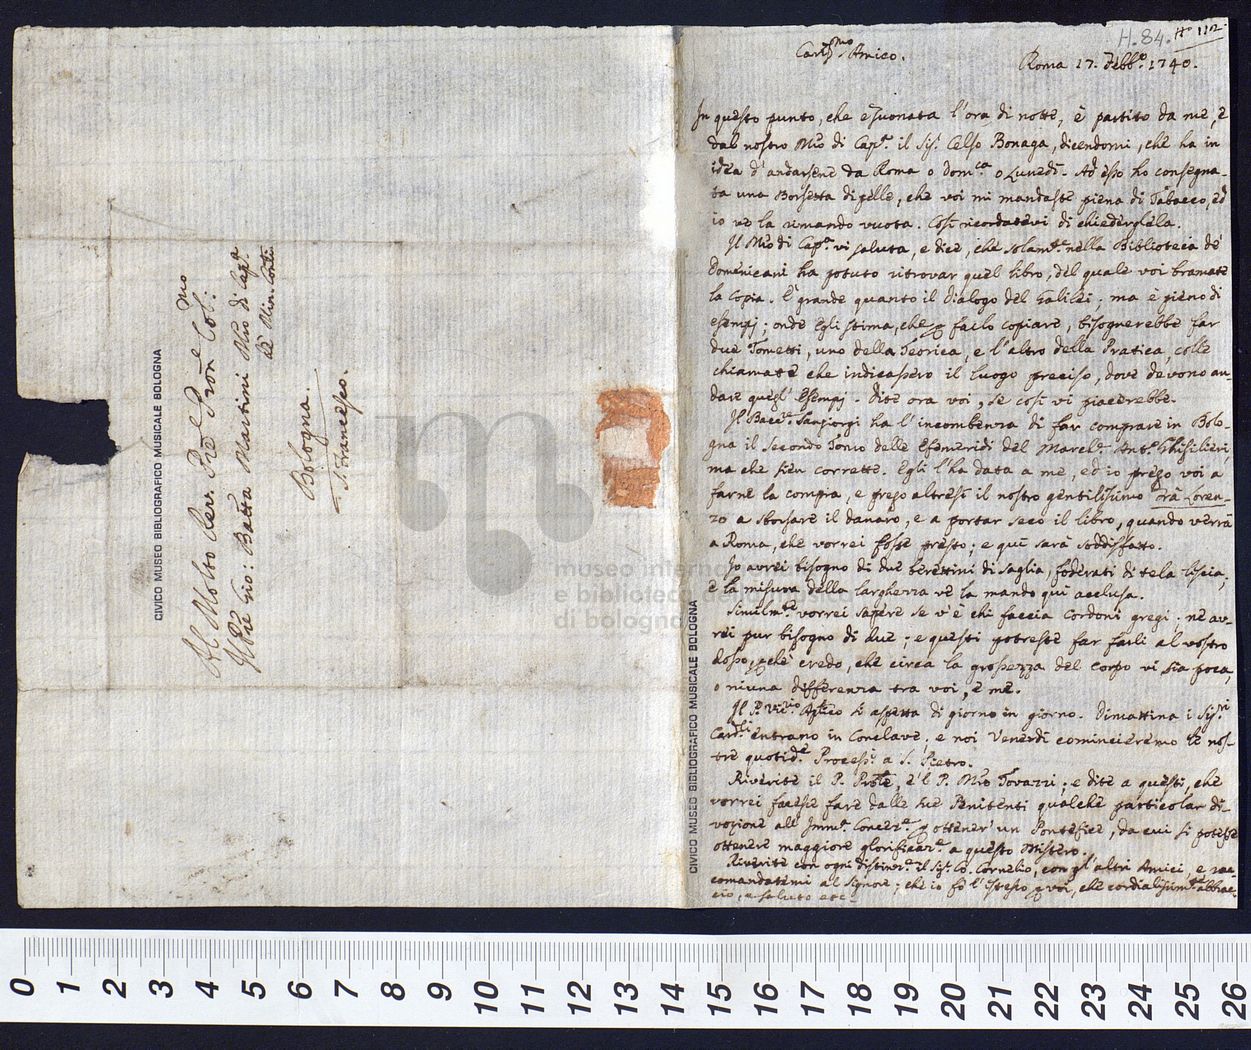 H.84. Nº 112.
Cariss.mo Amico.
Roma 17. Febb.º 1740.
In questo punto, che è suonata l'ora di notte, è partito da me, e
dal nostro Mro di Capp.ª il Sig. Celso Bonaga, dicendomi, che ha in
idea d'andarsene da Roma o Dom.ca o Lunedì. Ad esso ho consegna-
ta una Borsetta di pelle, che voi mi mandaste piena di Tabacco, ed
io ve la rimando vuota. Così ricordatevi di chiedergliela.
Il Mro di Capp.ª vi saluta, e dice, che solam.te nella Biblioteca de'
Domenicani ha potuto ritrovar quel libro, del quale voi bramate
la copia. È grande quanto il dialogo del Galilei; ma è pieno di
esempj; onde Egli stima, che p farlo copiare, bisognerebbe far
due Tometti, uno della Teorica, e l'altro della Pratica, colle
chiamate che indicassero il luogo preciso, dove devono an-
dare quegl' Esempj. Dite ora voi, se così vi piacerebbe.
Il Bacc.re Sangiorgi ha l'incombenza di far comprare in Bolo-
gna il secondo Tomo delle Efemeridi del March.e Ant.º Ghisilieri,
ma che sien corrette. Egli l'ha data a me, ed io prego voi a
farne la compra, e prego altresì il nostro gentilissimo Frà Loren-
zo a sborsare il danaro, e a portar seco il libro, quando verrà
a Roma, che vorrei fosse presto; e quì sarà soddisfatto.
Io avrei bisogno di due berettini di saglia, foderati di tela liscia,
e la misura della larghezza ve la mando quì acclusa.
Similm.te vorrei sapere se v'è chi faccia Cordoni gregi; ne av-
rei pur bisogno di due; e questi potreste far farli al vostro
dosso, pchè credo, che circa la grossezza del corpo vi sia poca,
o niuna differenza tra voi, e me.
Il P. Vic.rio Aplico si aspetta di giorno in giorno. Dimattina i Sig.ri
Card.li entrano in Conclave, e noi Venerdì comincieremo le nos-
tre quotid.e Process.i a S. Pietro.
Riverite il P. Prole, e 'l P. Mro Tovazzi; e dite a questi, che
vorrei facesse fare dalle sue Penitenti qualche particolar di-
vozione all' Imm.ª Concez.e p ottener' un Pontefice, da cui si potesse
ottenere maggiore glorificaz.e a questo Mistero.
Riverite con ogni distinz.e il Sig. Co. Cornelio, con gl'altri Amici, e rac-
comandatemi al Signore; che io fò l'istesso p voi, che cordialissim.te abbrac-
cio, e saluto etc.
Al Molto Rev. Pre Pron.e Col.mo
Il Pre Gio: Batta Martini Mro di Capp.ª
de' Min. Conv.
Bologna.
S. Francesco.
CIVICO MUSEO BIBLIOGRAFICO MUSICALE BOLOGNA
CIVICO MUSEO BIBLIOGRAFICO MUSICALE BOLOGNA
museo interna
e biblioteca della
di bologna
0 1 2 3 4 5 6 7 8 9 10 11 12 13 14 15 16 17 18 19 20 21 22 23 24 25 26